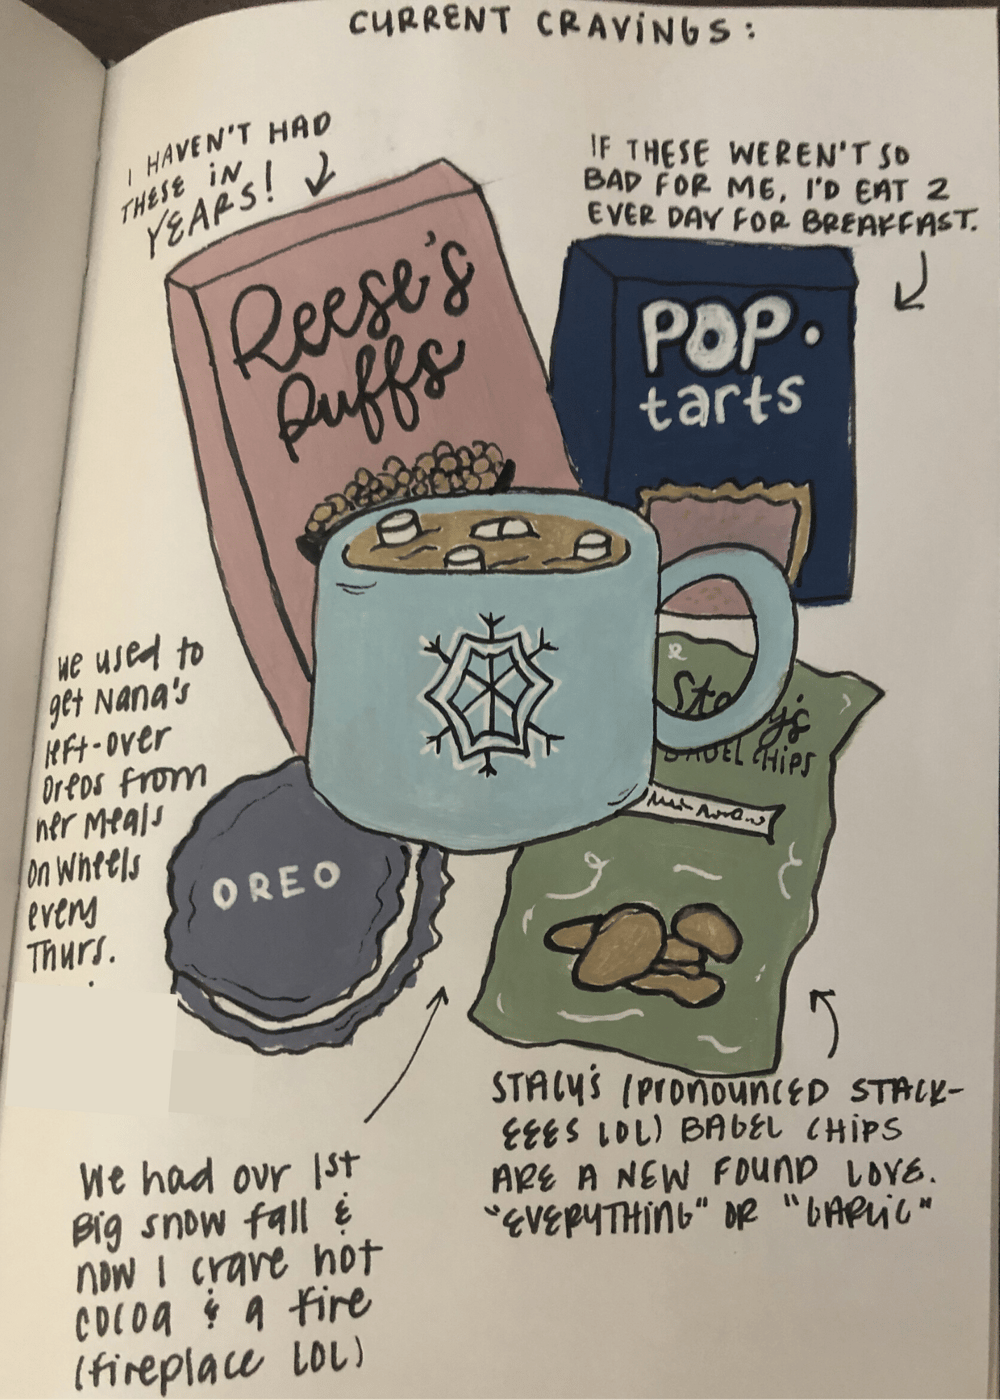 CURRENT CRAVINGS:
I HAVEN'T HAD
THESE IN
YEARS!
IF THESE WEREN'T SO
BAD FOR ME, I'D EAT 2
EVER DAY FOR BREAKFAST.
Reese's
Puffs
POP.
tarts
we used to
get Nana's
left-over
Oreos from
her Meals
on Wheels
every
Thurs.
OREO
BAGEL CHIPS
STACY'S (PRONOUNCED STACK-
EEES LOL) BAGEL CHIPS
ARE A NEW FOUND LOVE.
"EVERYTHING" OR "GARLIC"
We had our 1st
Big snow fall &
now I crave hot
cocoa & a fire
(fireplace LOL)